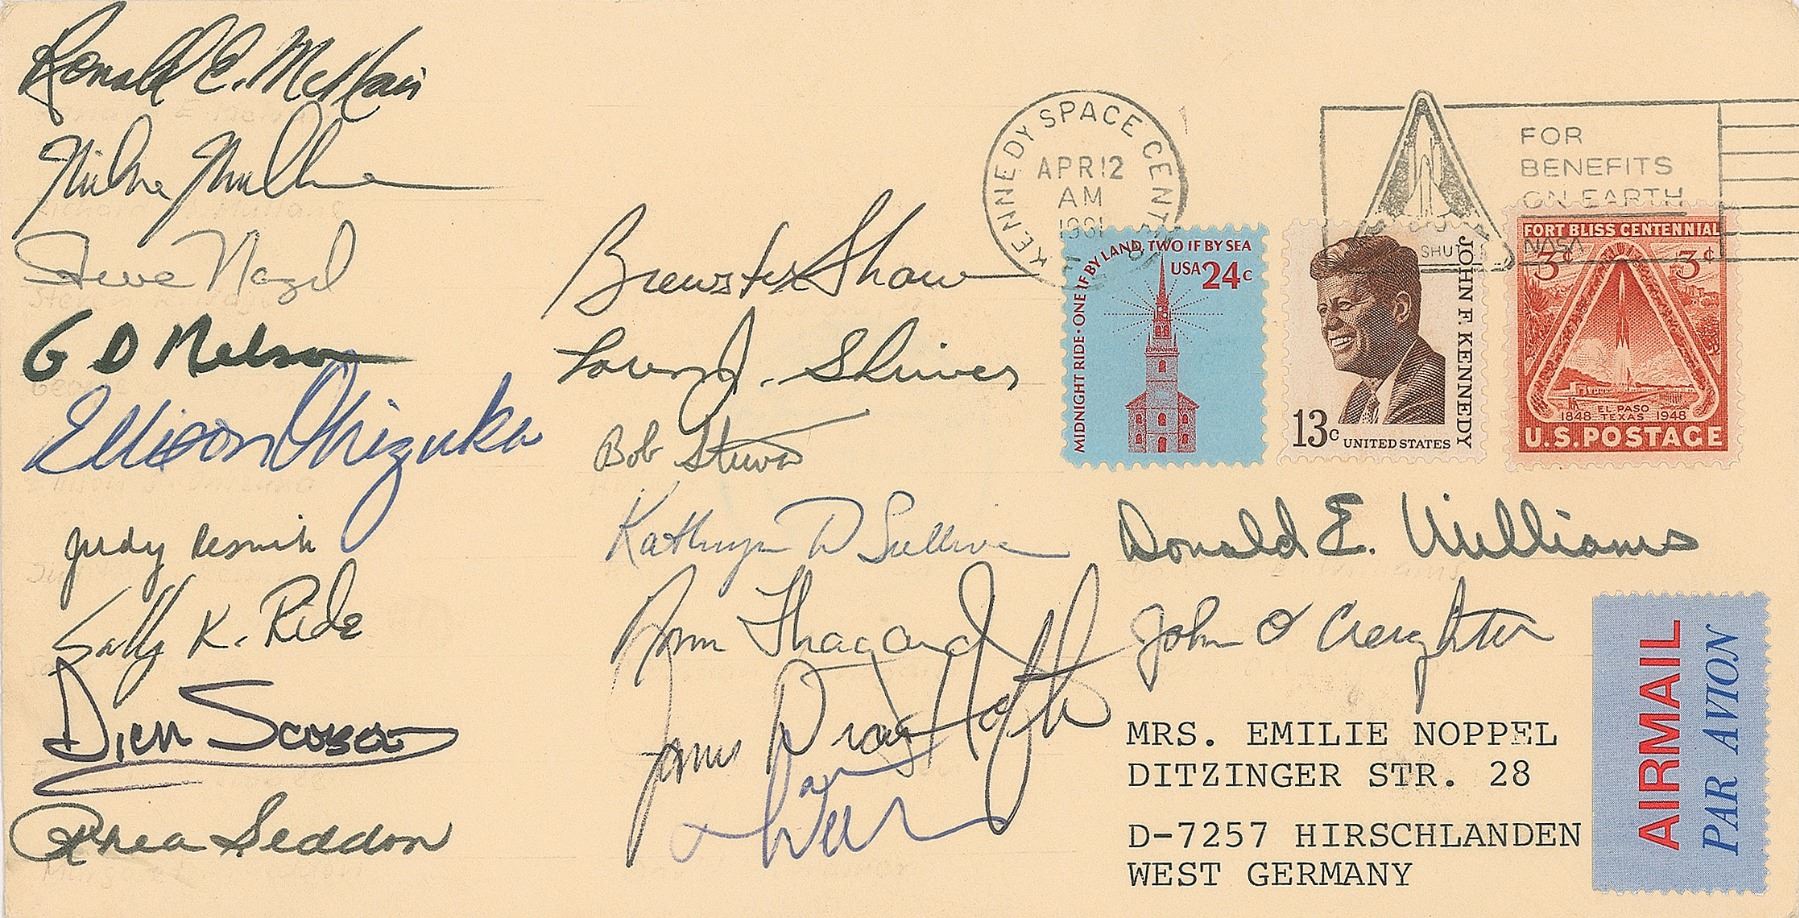 Ronald E. McNair
Mike Mullane
Steve Nagel
G D Nelson
Ellison Onizuka
Judy Resnik
Sally K. Ride
Dick Scobee
Rhea Seddon
Brewster Shaw
Loren J. Shriver
Bob Stewart
Kathryn D Sullivan
Norm Thagard
James D van Hoften
Dave Walker
KENNEDY SPACE CENTER
APR 12
AM
1981
FOR
BENEFITS
ON EARTH
SHU
NASA
MIDNIGHT RIDE · ONE IF BY LAND, TWO IF BY SEA
USA 24c
JOHN F. KENNEDY
13c UNITED STATES
FORT BLISS CENTENNIAL
3¢ 3¢
EL PASO
1848 TEXAS 1948
U.S. POSTAGE
Donald E. Williams
John O Creighton
MRS. EMILIE NOPPEL
DITZINGER STR. 28
D-7257 HIRSCHLANDEN
WEST GERMANY
AIRMAIL
PAR AVION